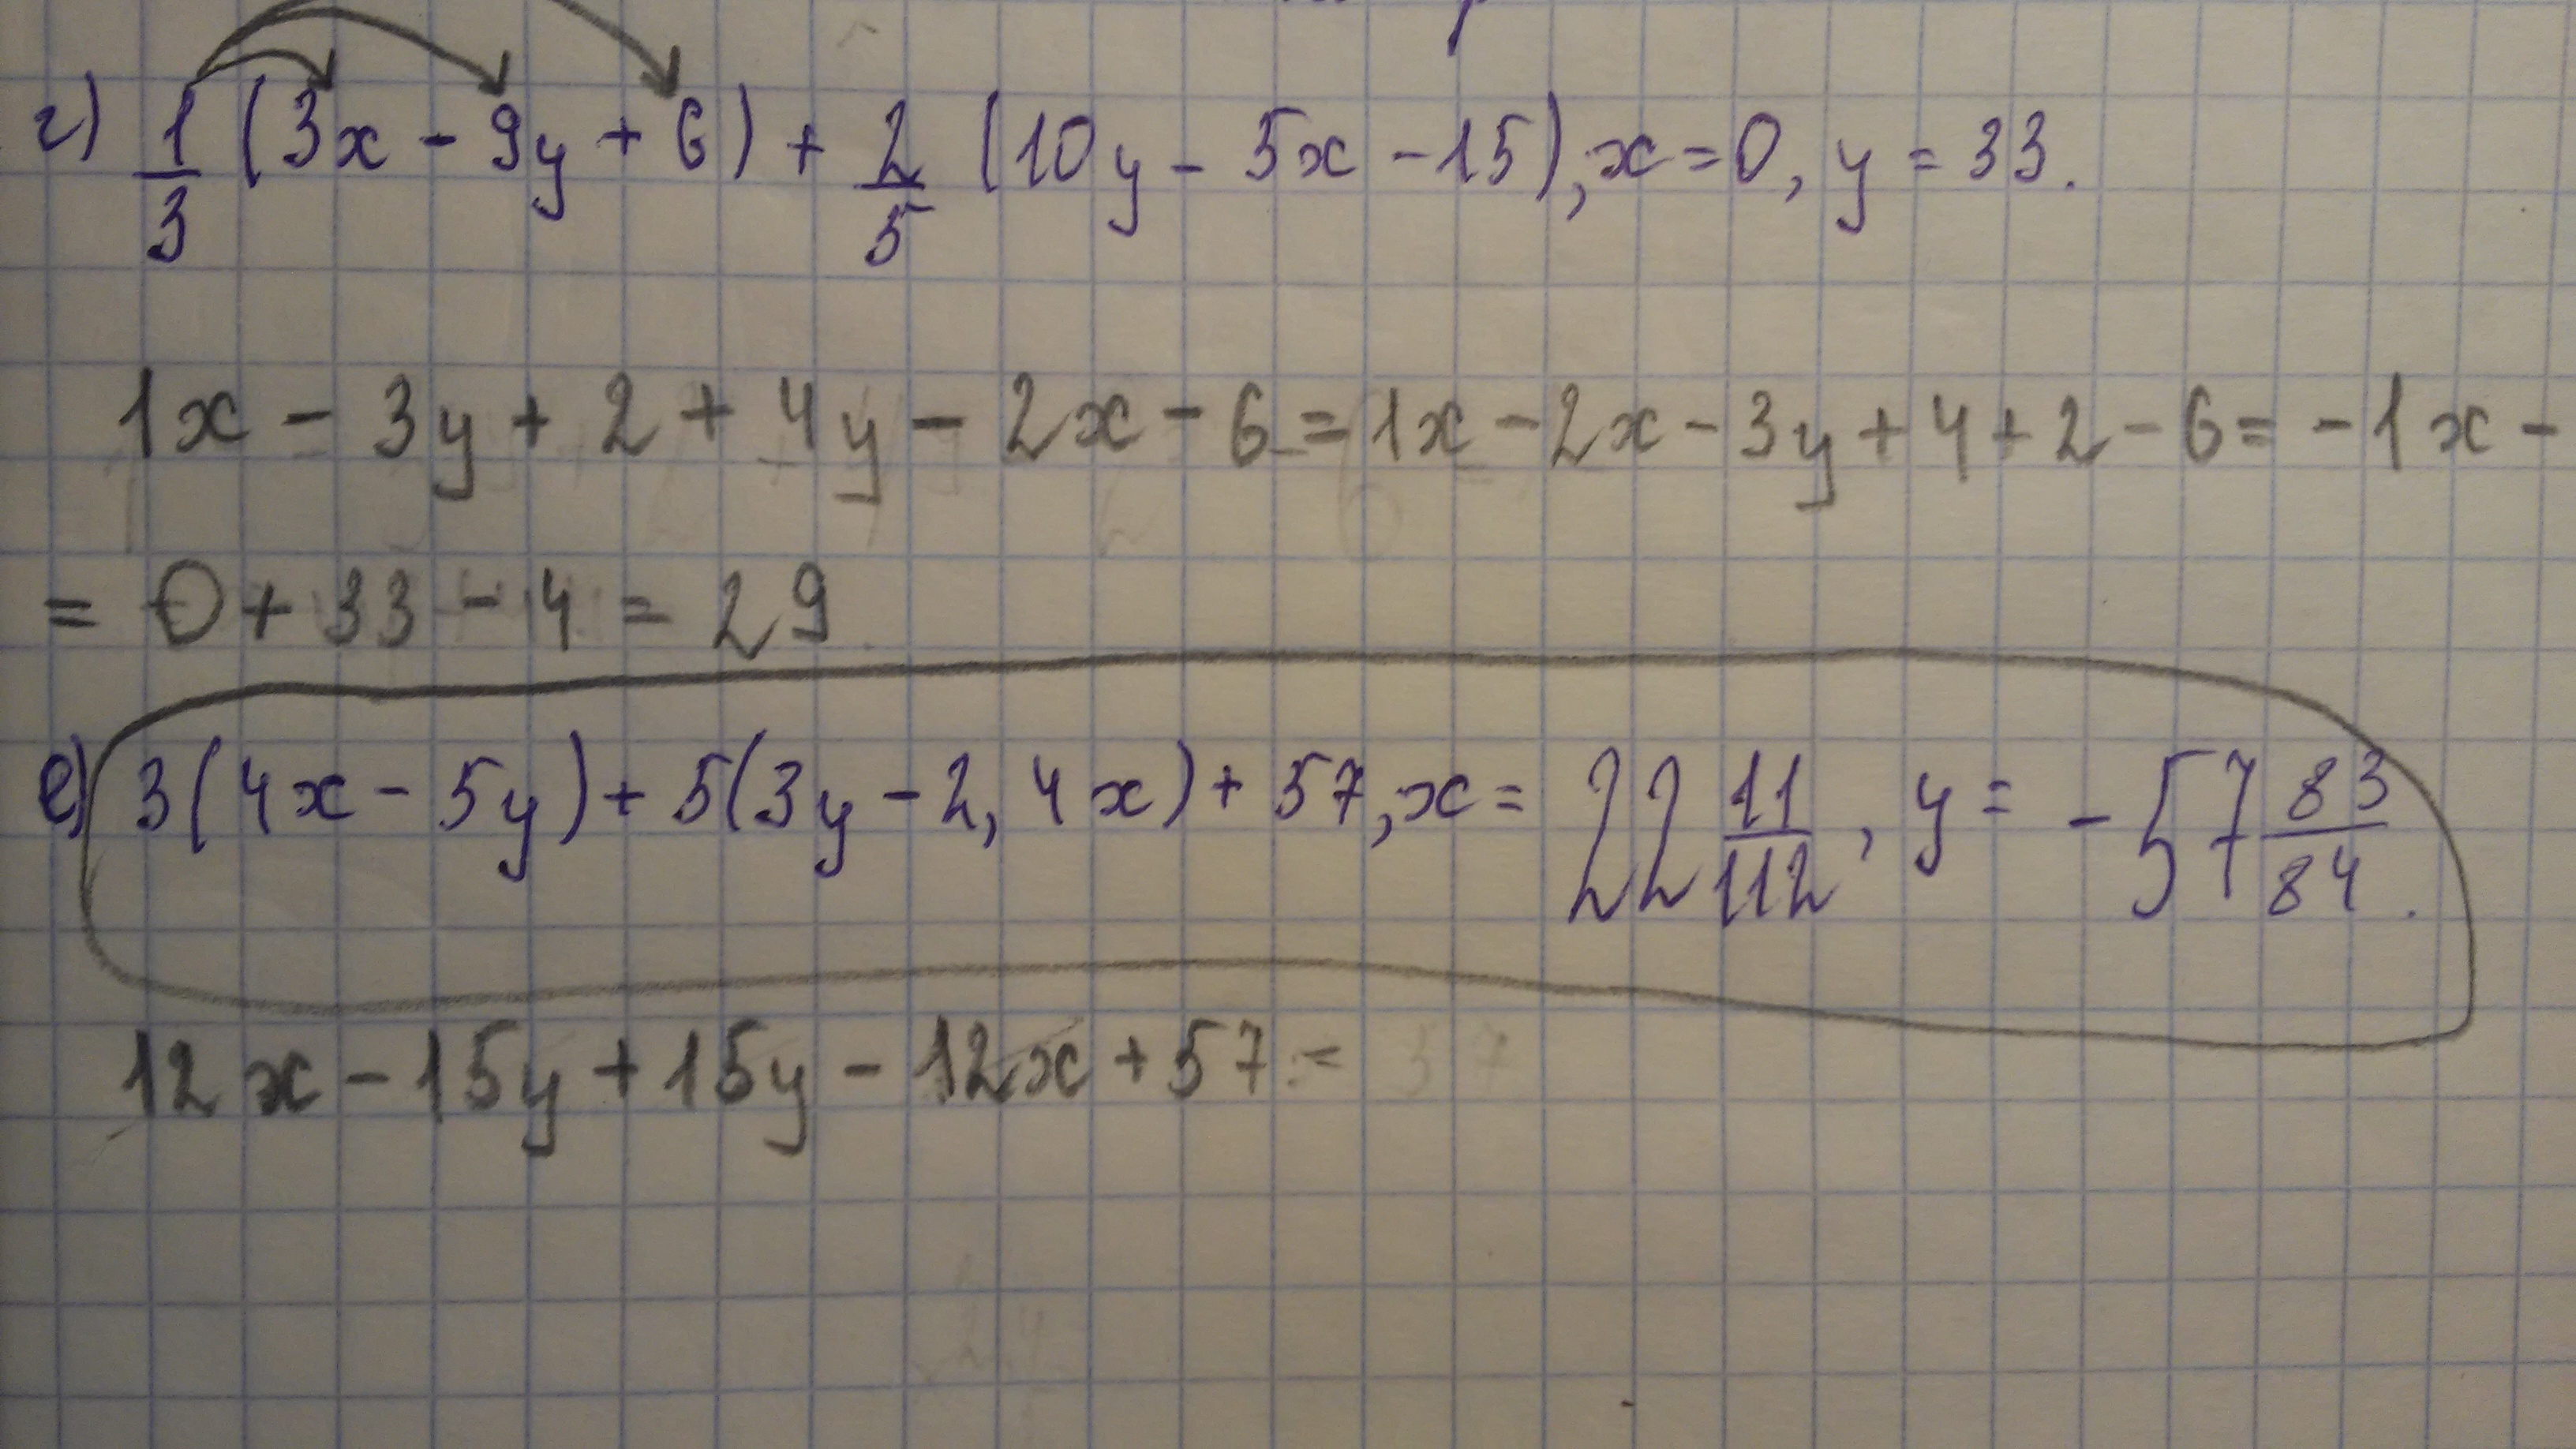 г) 1/3 (3x - 9y + 6) + 2/5 (10y - 5x - 15), x = 0, y = 33.
1x - 3y + 2 + 4y - 2x - 6 = 1x - 2x - 3y + 4 + 2 - 6 = -1x -
= 0 + 33 - 4 = 29
е) 3(4x - 5y) + 5(3y - 2,4x) + 57, x = 22 11/112, y = -57 83/84.
12x - 15y + 15y - 12x + 57 = 57